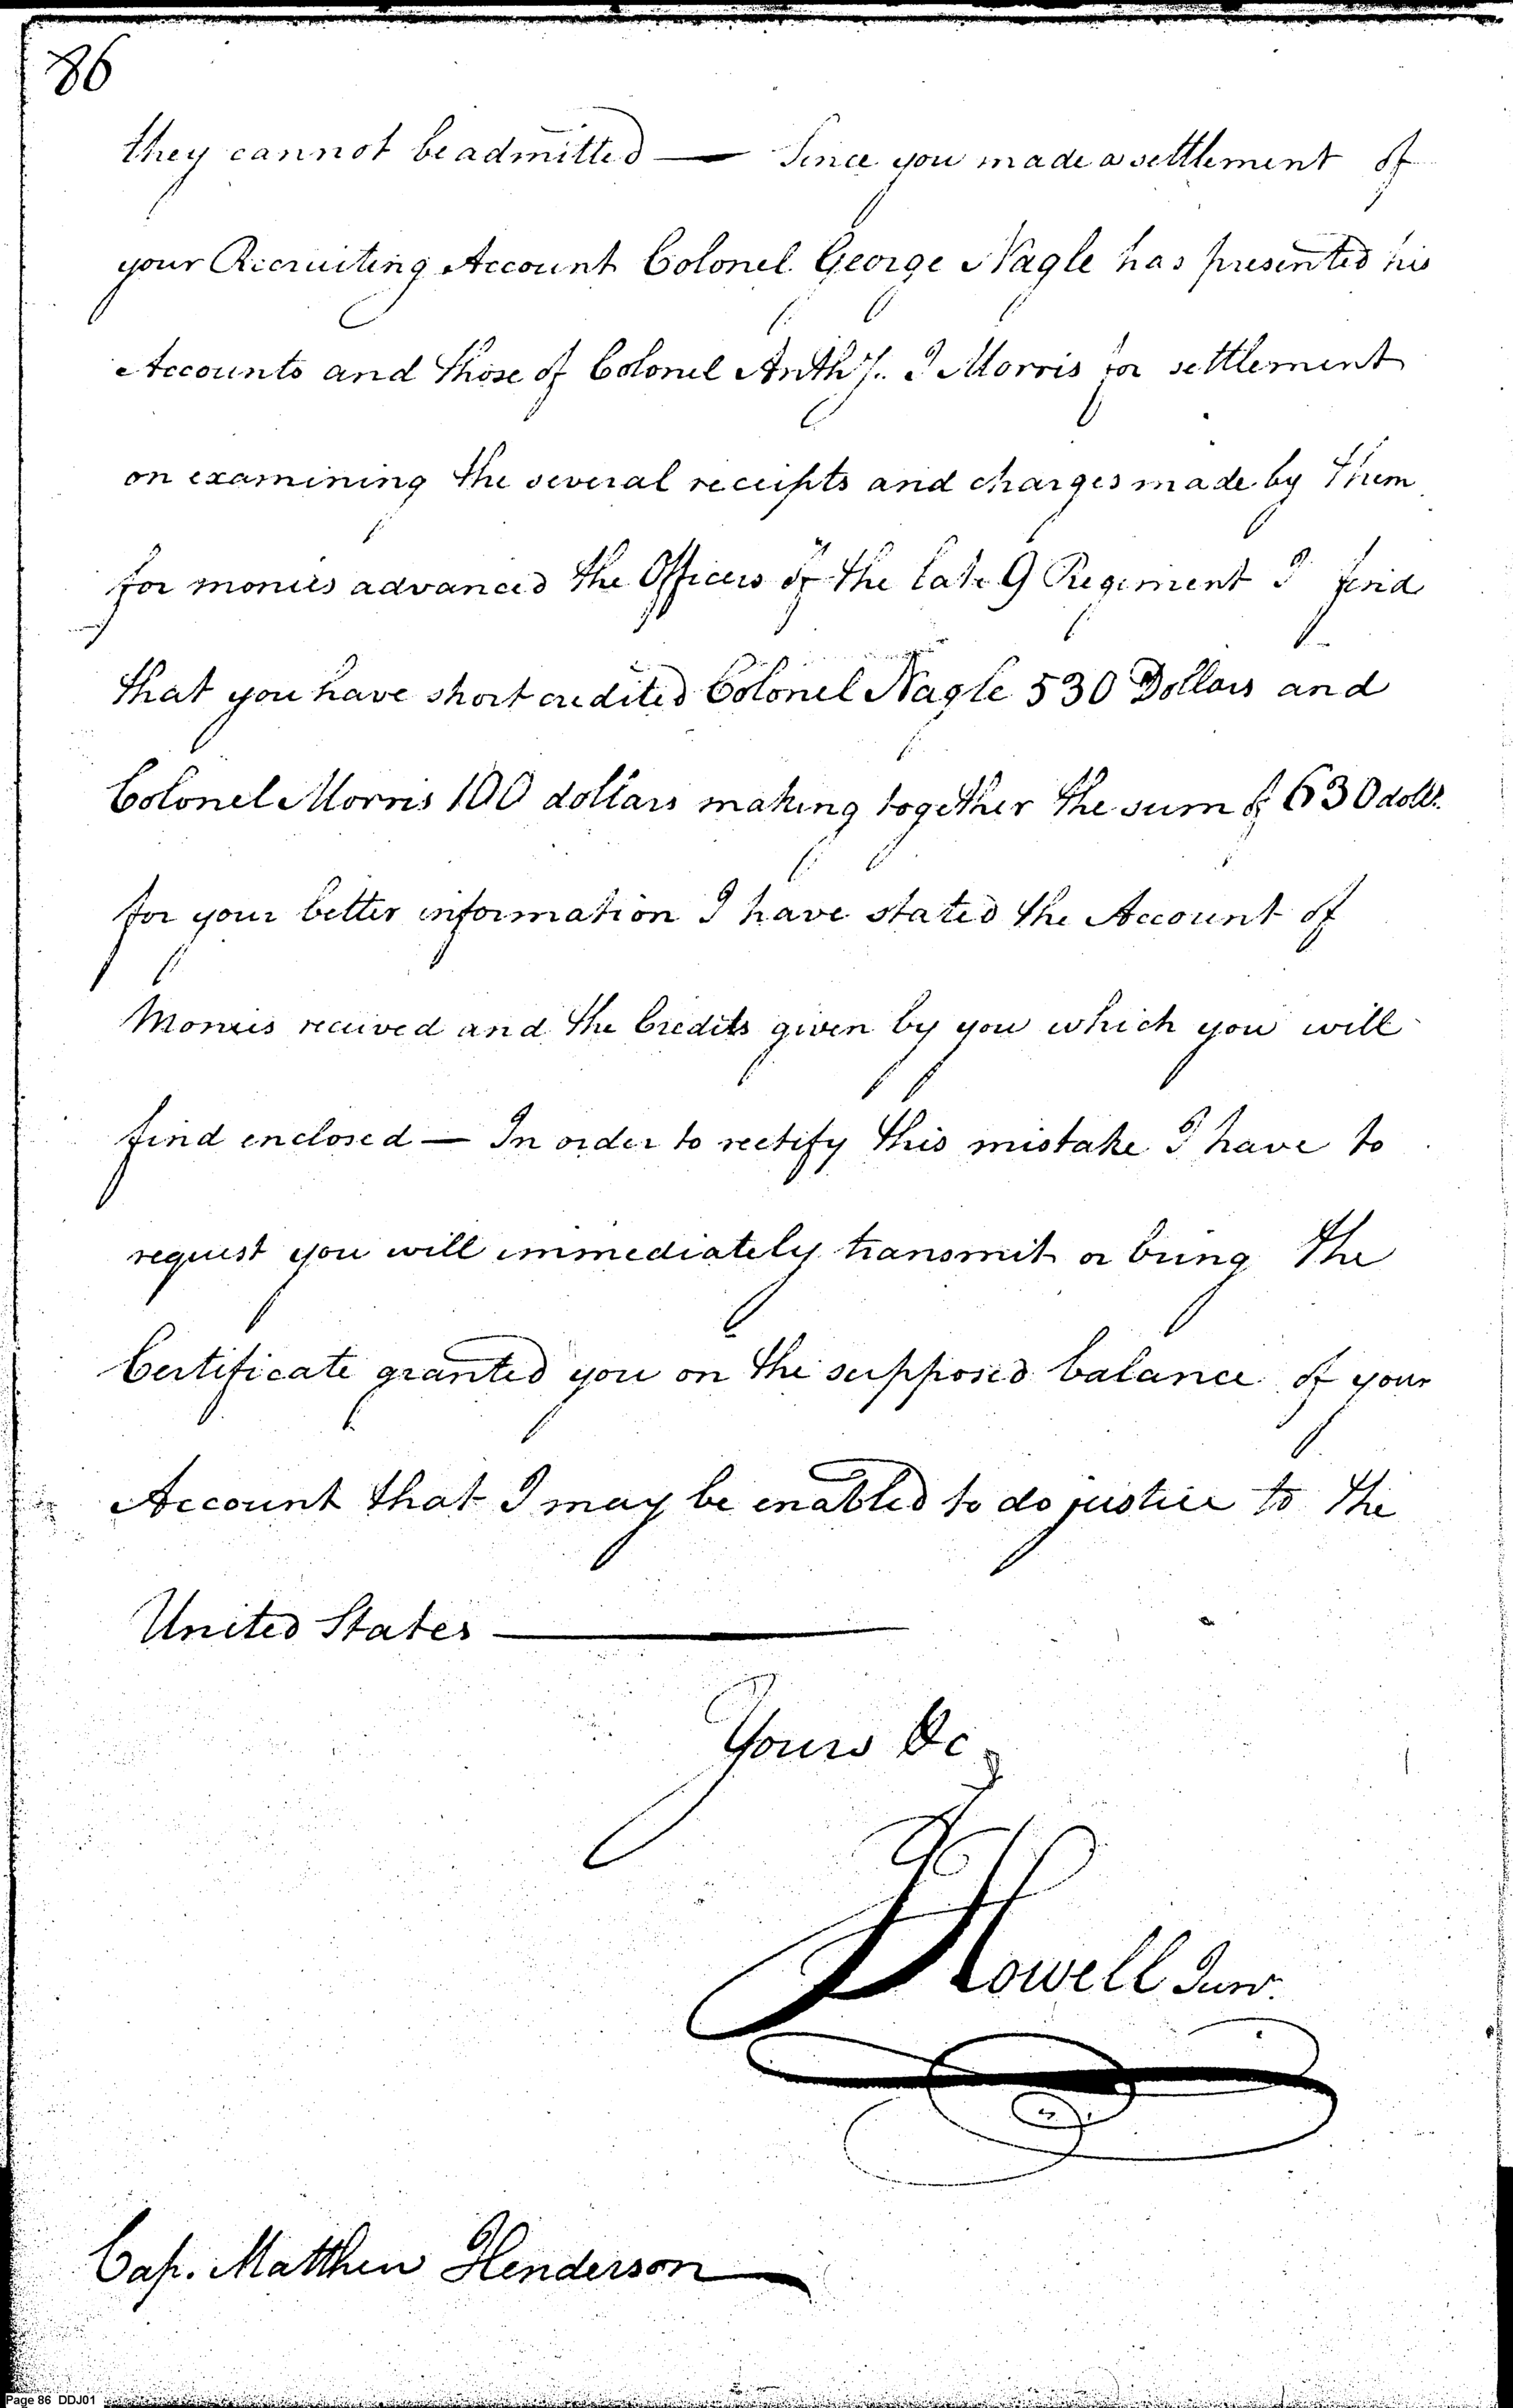 86
they cannot be admitted — Since you made a settlement of
your Recruiting Account Colonel George Nagle has presented his
Accounts and those of Colonel Anthy. J Morris for settlement
on examining the several receipts and charges made by them
for monies advanced the Officers of the late 9 Regiment I find
that you have short credited Colonel Nagle 530 Dollars and
Colonel Morris 100 dollars making together the sum of 630 dolls.
for your better information I have stated the Account of
Monies received and the Credits given by you which you will
find enclosed — In order to rectify this mistake I have to
request you will immediately transmit or bring the
Certificate granted you on the supposed balance of your
Account that I may be enabled to do justice to the
United States —
Yours &c
J Howell Junr.
Cap. Matthew Henderson —
Page 86 DDJ01